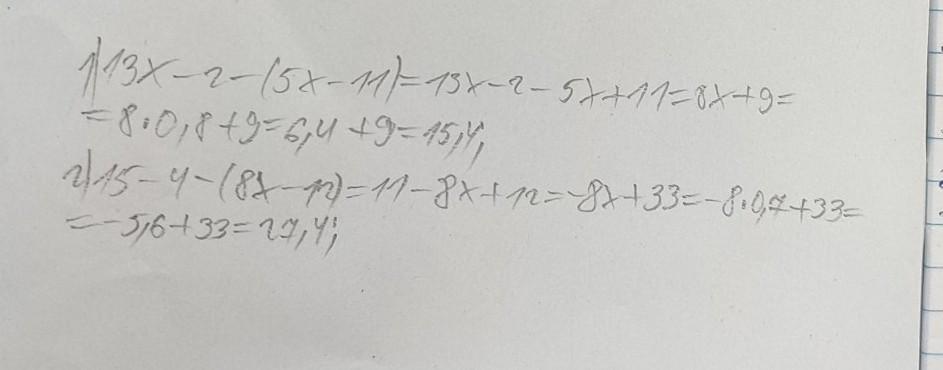 1) 13x - 2 - (5x - 11) = 13x - 2 - 5x + 11 = 8x + 9 =
= 8 · 0,8 + 9 = 6,4 + 9 = 15,4;
2) 15 - 4 - (8x - 12) = 11 - 8x + 12 = -8x + 33 = -8 · 0,7 + 33 =
= -5,6 + 33 = 27,4;